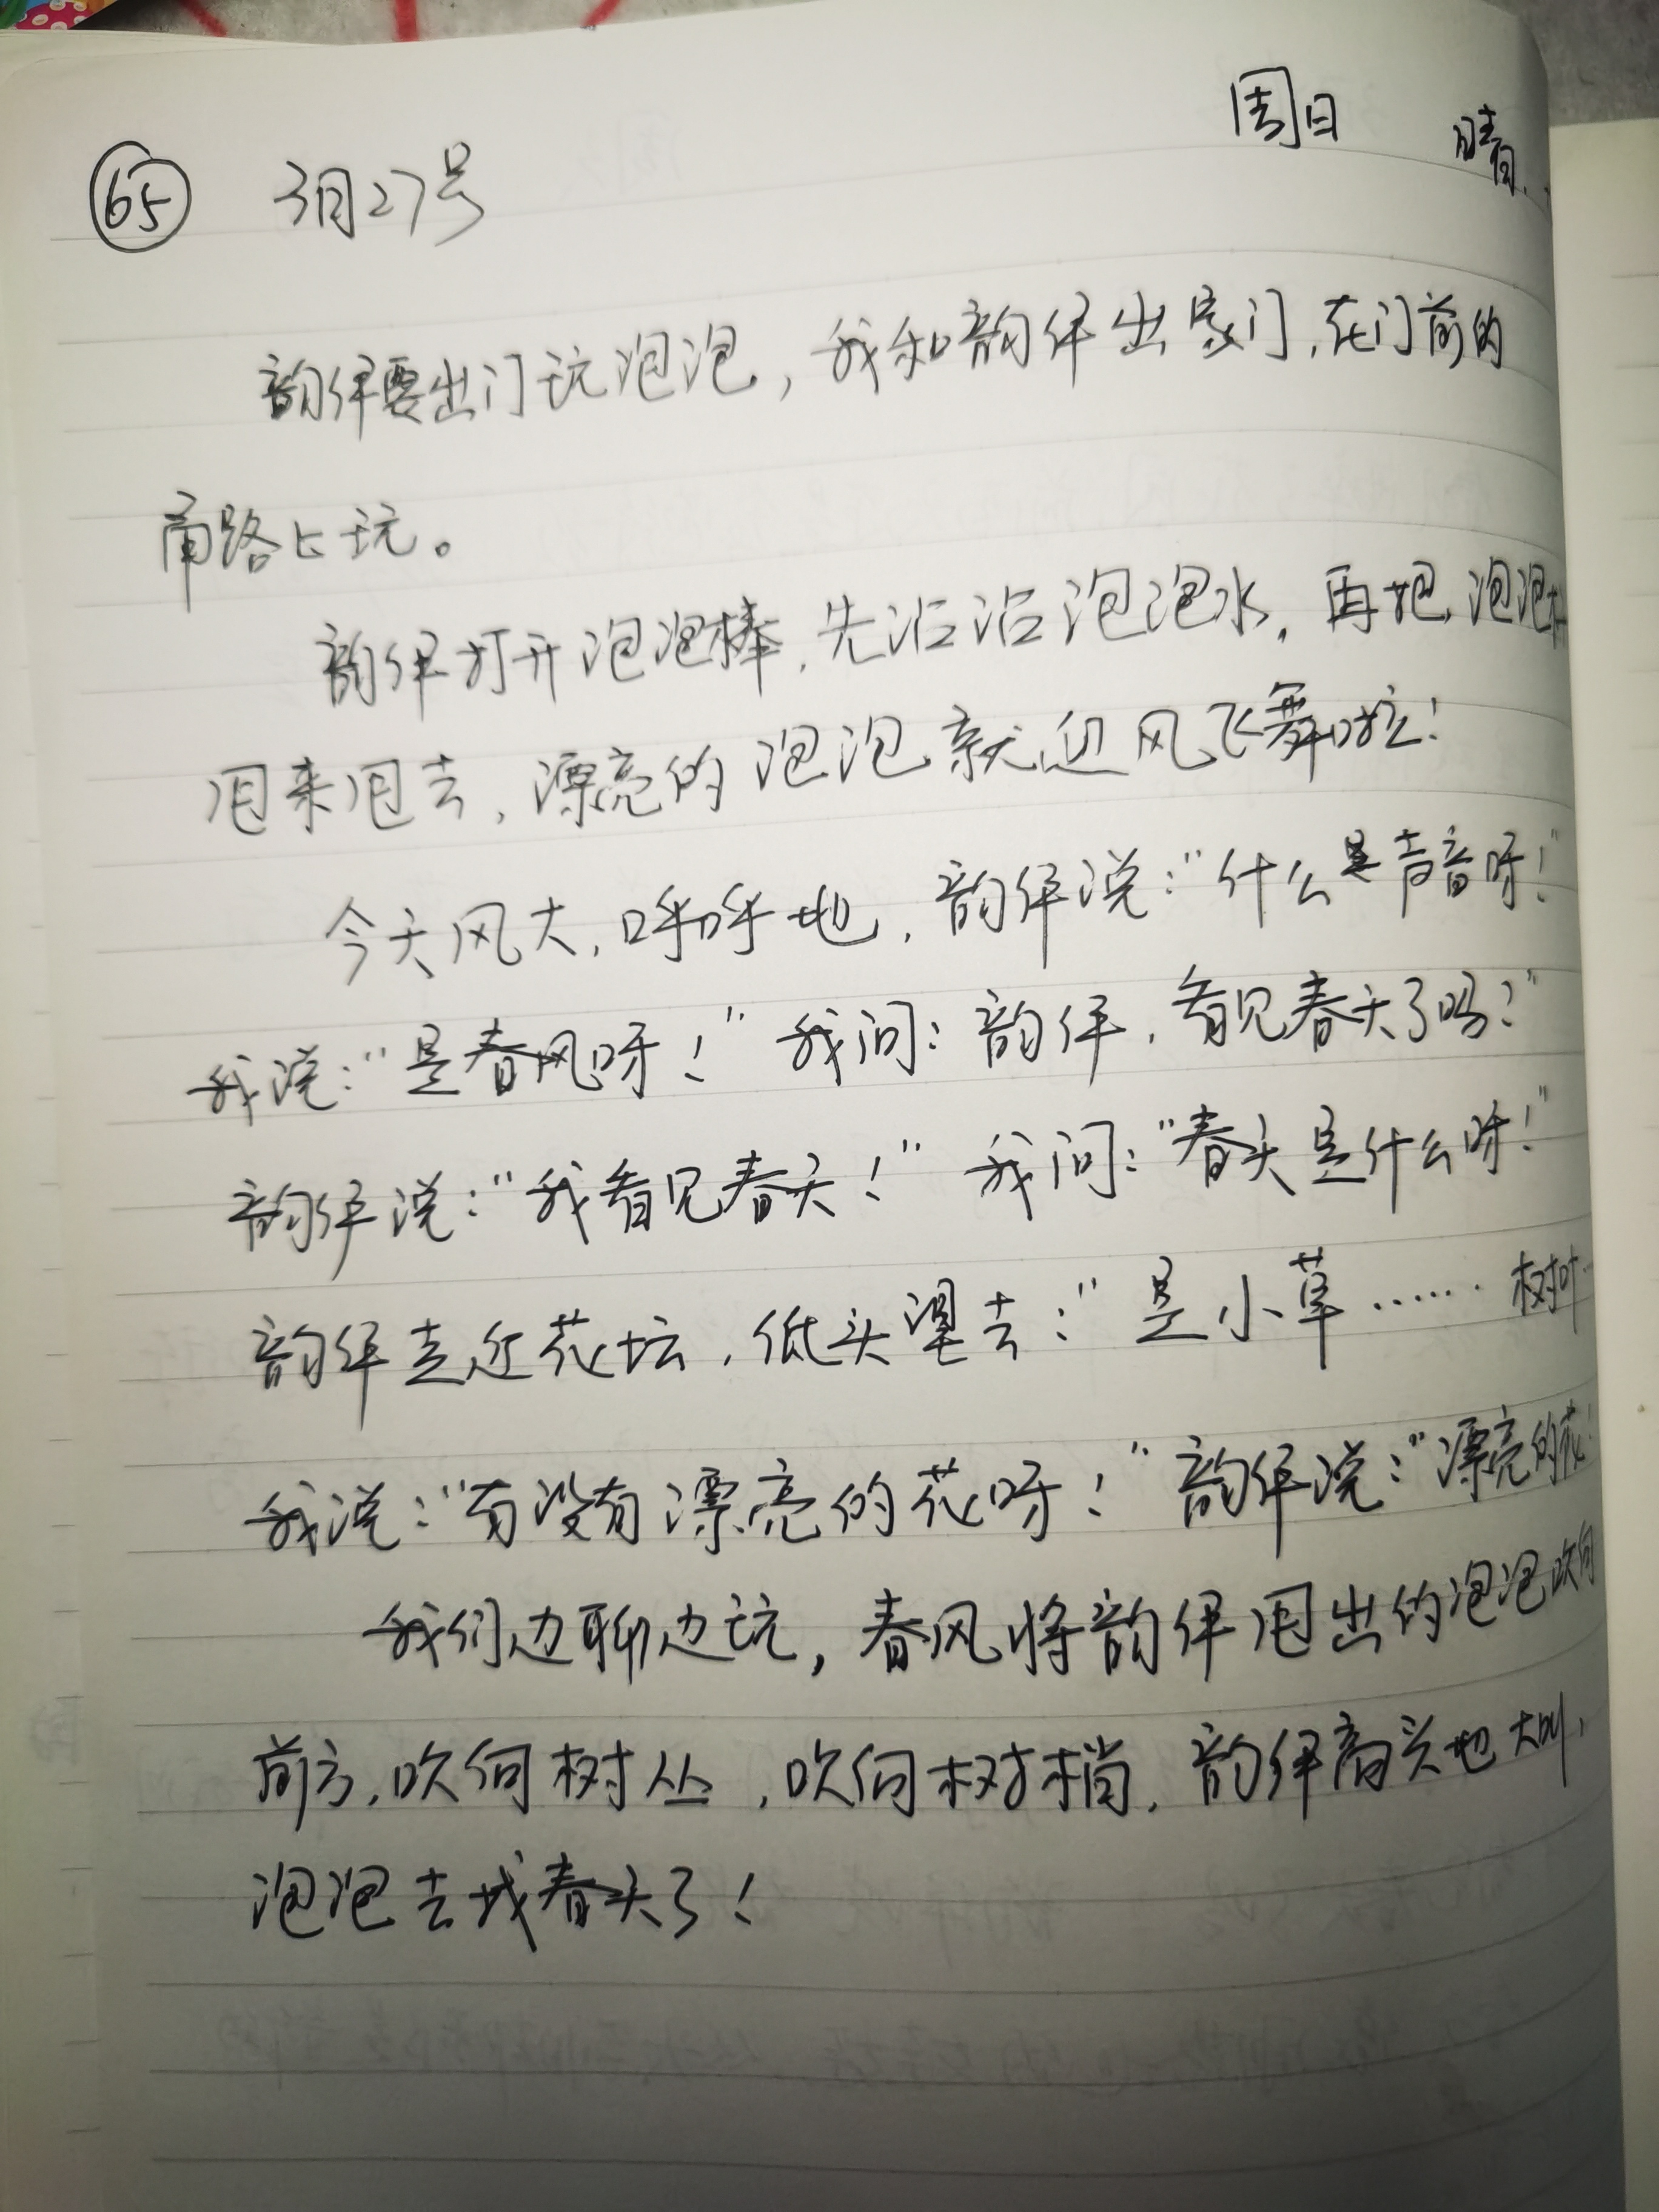 周日 晴
65 3月27号
韵伊要出门玩泡泡，我和韵伊出家门，在门前的
甬路上玩。
韵伊打开泡泡棒，先沾沾泡泡水，再把泡泡棒
甩来甩去，漂亮的泡泡就迎风飞舞啦！
今天风大，呼呼地，韵伊说：“什么是声音呀！”
我说：“是春风呀！”我问：韵伊，看见春天了吗？”
韵伊说：“我看见春天！”我问：“春天是什么呀！”
韵伊走近花坛，低头望去：“是小草……树叶…
我说：“有没有漂亮的花呀！”韵伊说：“漂亮的花！
我们边聊边玩，春风将韵伊甩出的泡泡吹向
前方，吹向树丛，吹向树梢，韵伊高兴地大叫，
泡泡去找春天了！